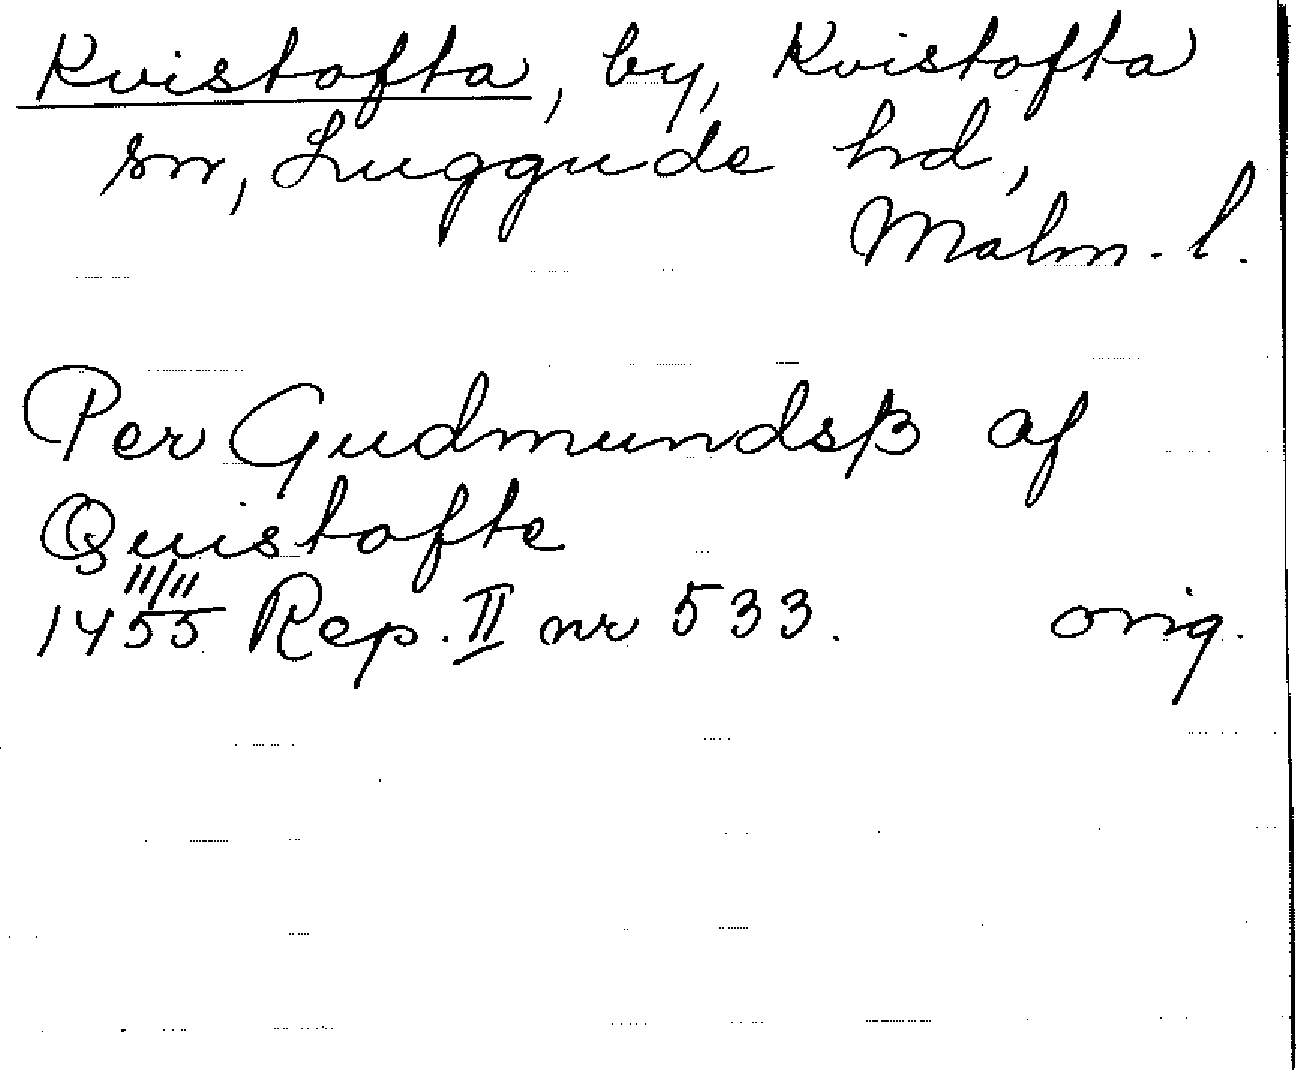 Kvistofta, by, Kvistofta
sn, Luggude hd,
Malm. l.
Per Gudmundsß af
Quistofte
11/11
1455 Rep. II nr 533. orig.